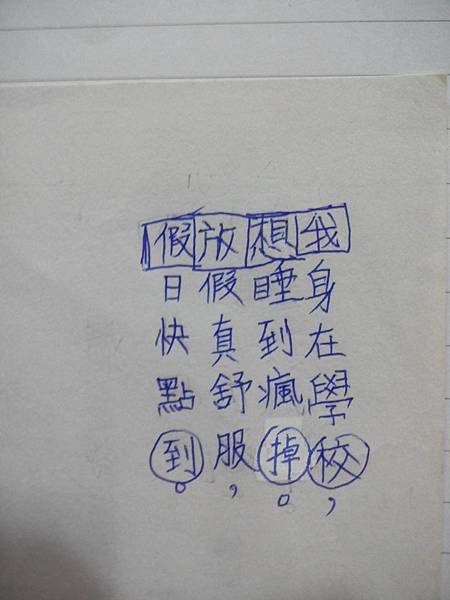 我身在學校，
想睡到瘋掉。
放假真舒服，
假日快點到。